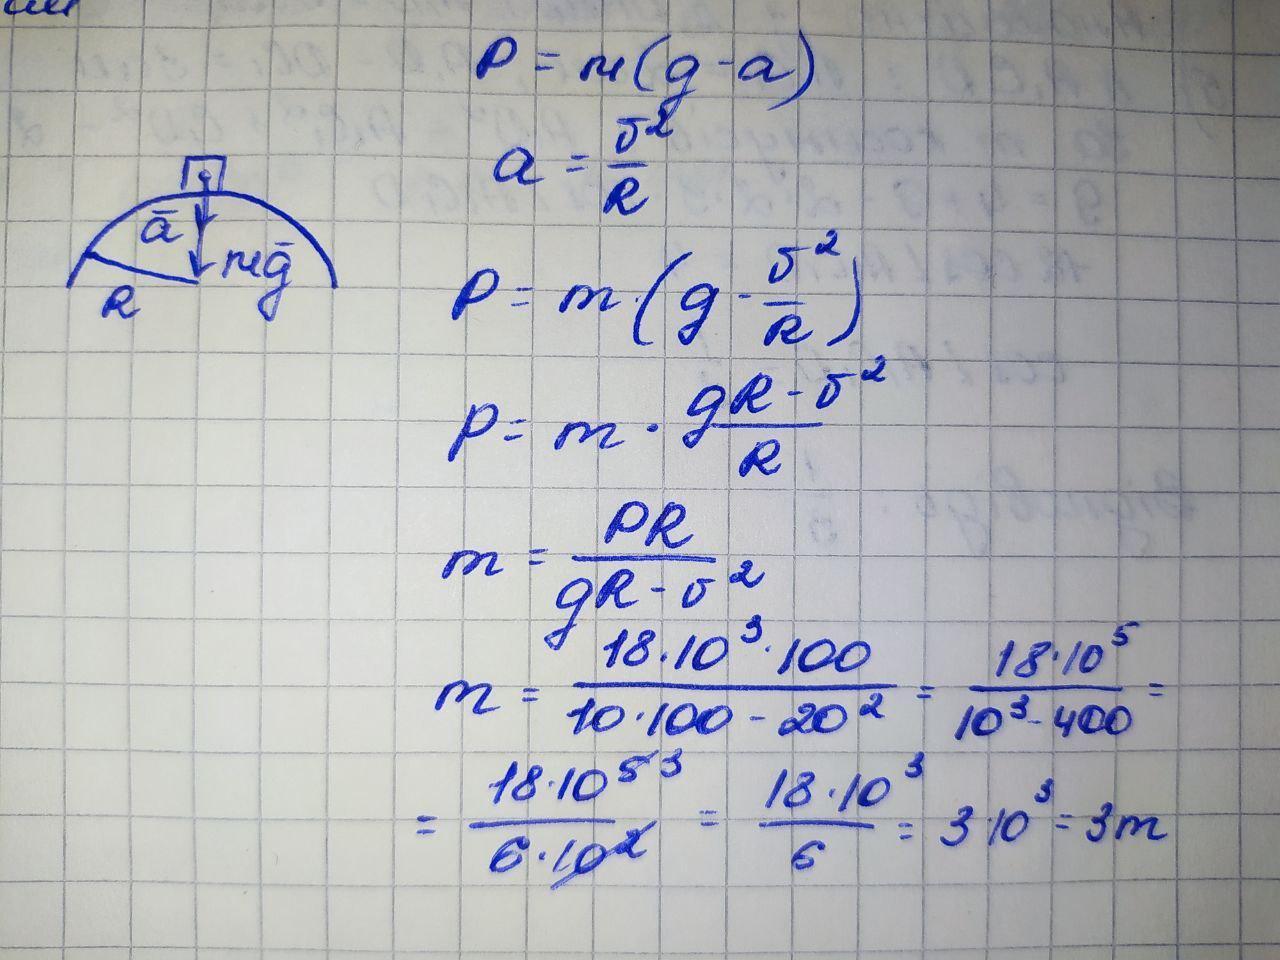 P = m(g - a)
a = v²/R
ā
mḡ
R
P = m·(g - v²/R)
P = m · (gR - v²)/R
m = PR/(gR - v²)
m = (18·10³·100)/(10·100 - 20²) = (18·10⁵)/(10³ - 400) =
= (18·10⁵ ³)/(6·10²) = (18·10³)/6 = 3·10³ = 3т